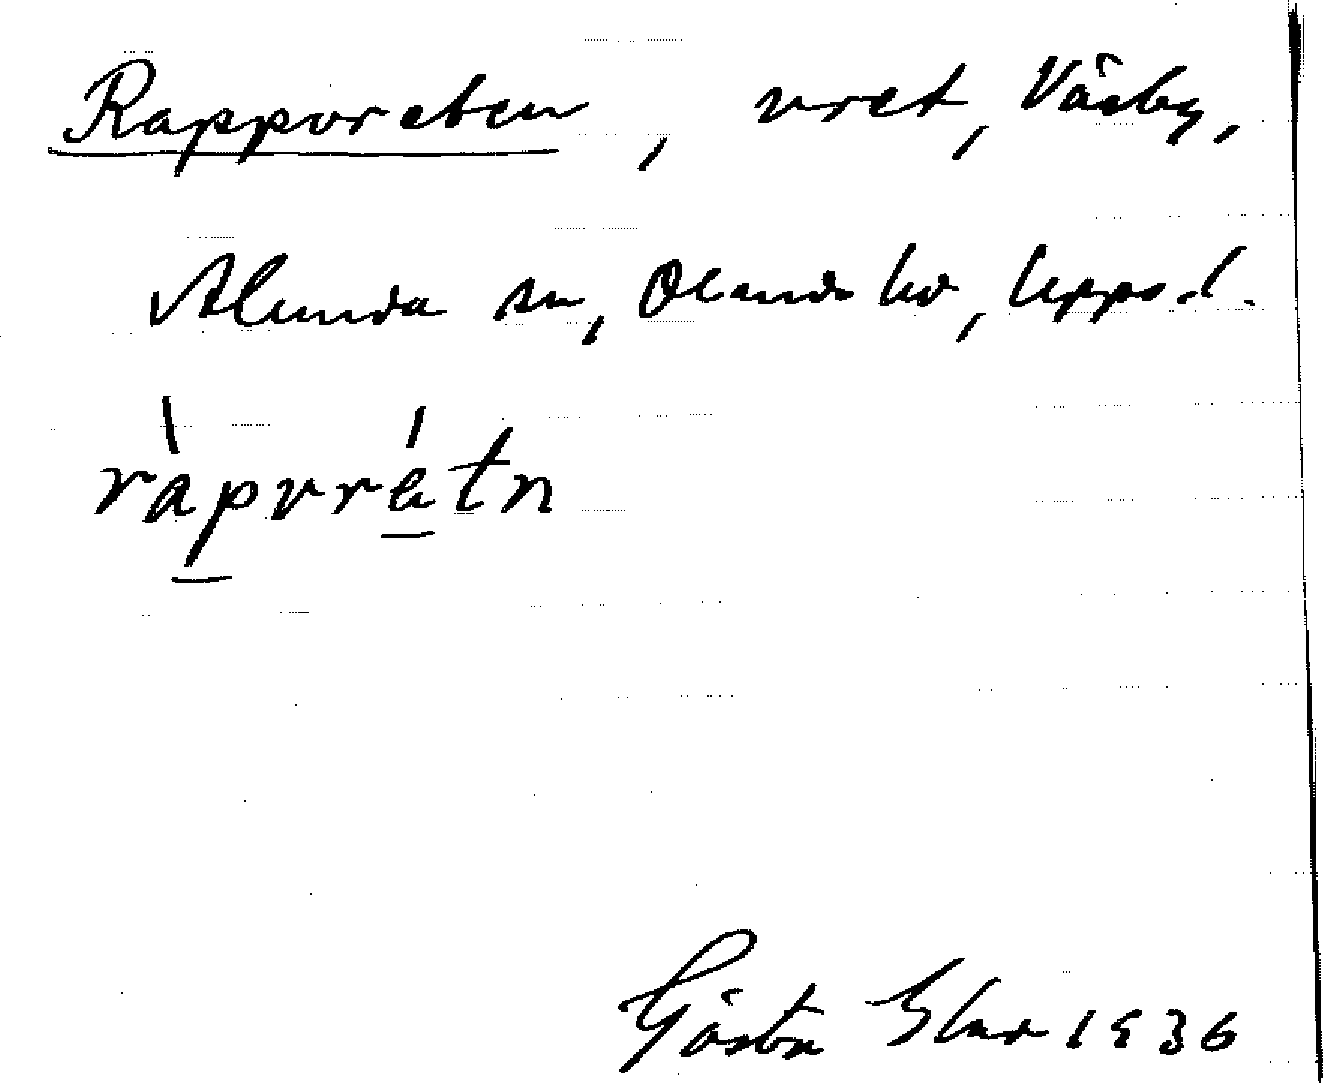 Rappvreten, vret, Väsby,
Alunda sn, Olands hd, Upps. l.
ràpvrétn
Gösta 1936